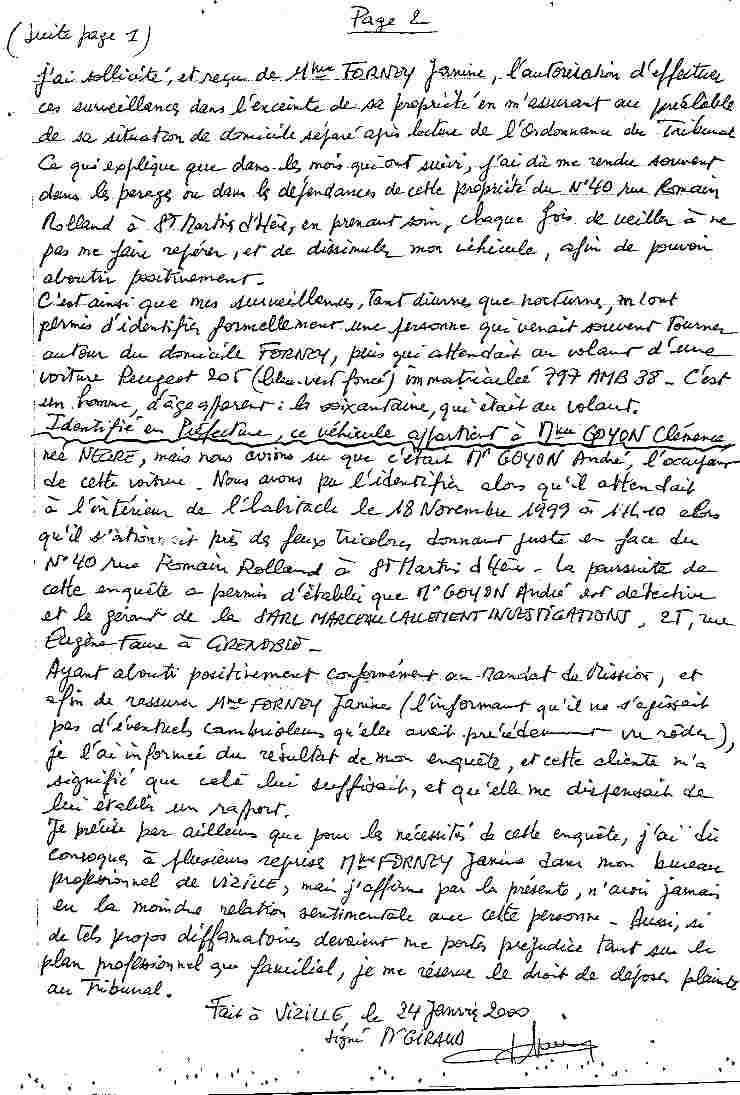 Page 2
(suite page 1)
J'ai sollicité, et reçu de Mme FORNOY Janine, l'autorisation d'effectuer
ces surveillances dans l'enceinte de sa propriété en m'assurant au préalable
de sa situation de domicile séparé après lecture de l'Ordonnance du Tribunal
Ce qui explique que dans les mois qui ont suivi, j'ai dû me rendre souvent
dans les parages ou dans les dépendances de cette propriété du N°40 rue Romain
Rolland à St Martin d'Hère, en prenant soin, chaque fois de veiller à ne
pas me faire repérer, et de dissimuler mon véhicule, afin de pouvoir
aboutir positivement.
C'est ainsi que mes surveillances, tant diurnes que nocturnes, m'ont
permis d'identifier formellement une personne qui venait souvent tourner
autour du domicile FORNOY, puis qui attendait au volant d'une
voiture Peugeot 205 (bleu-vert foncé) immatriculée 797 AMB 38 - C'est
un homme, d'âge apparent : la soixantaine, qui était au volant.
Identifié en Préfecture, ce véhicule appartient à Mme GOYON Clémence,
née NEGRE, mais nous avions su que c'était Mr GOYON André, l'occupant
de cette voiture. Nous avons pu l'identifier alors qu'il attendait
à l'intérieur de l'habitacle le 18 Novembre 1999 à 11h10 alors
qu'il stationnait près des feux tricolores donnant juste en face du
N°40 rue Romain Rolland à St Martin d'Hère - La poursuite de
cette enquête a permis d'établir que Mr GOYON André est détective
et le gérant de la SARL MARCEAU LALLEMENT INVESTIGATIONS, 2T, rue
Eugène Faure à GRENOBLE -
Ayant abouti positivement conformément au Mandat de Mission, et
afin de rassurer Mme FORNOY Janine (l'informant qu'il ne s'agissait
pas d'éventuels cambrioleurs qu'elle avait précédemment vu rôder),
je l'ai informée du résultat de mon enquête, et cette cliente m'a
signifié que celà lui suffisait, et qu'elle me dispensait de
lui établir un rapport.
Je précise par ailleurs que pour les nécessités de cette enquête, j'ai dû
convoquer à plusieurs reprise Mme FORNOY Janine dans mon bureau
professionnel de VIZILLE, mais j'affirme par la présente, n'avoir jamais
eu la moindre relation sentimentale avec cette personne - Aussi, si
de tels propos diffamatoires devaient me porter préjudice tant sur le
plan professionnel que familial, je me réserve le droit de déposer plainte
au Tribunal.
Fait à VIZILLE, le 24 Janvier 2000
Signé Mr GIRAUD